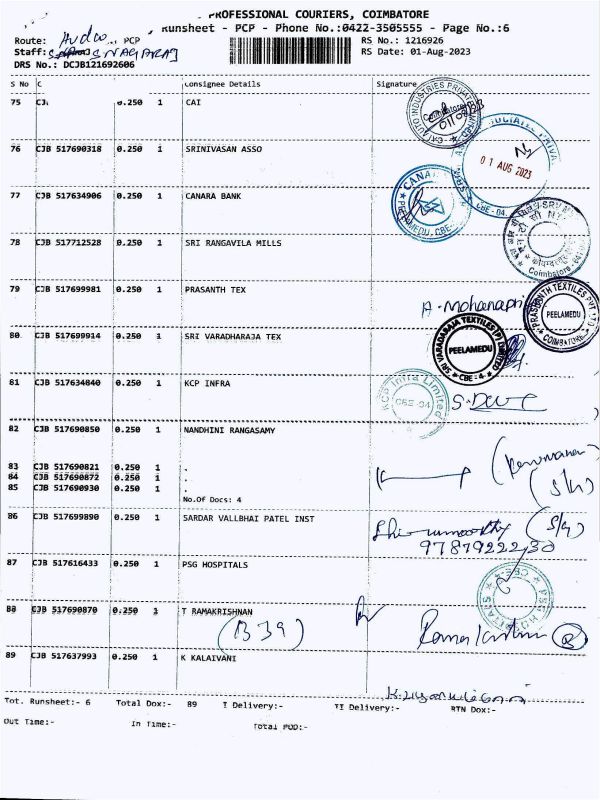 PROFESSIONAL COURIERS, COIMBATORE
Runsheet - PCP - Phone No.:0422-3505555 - Page No.:6
Route: PCP
RS No.: 1216926
Staff: S NAGARAJ
RS Date: 01-Aug-2023
DRS No.: DCJB121692606
S No C Consignee Details Signature
75 CJ 0.250 1 CAI
76 CJB 517690318 0.250 1 SRINIVASAN ASSO
01 AUG 2023
77 CJB 517634906 0.250 1 CANARA BANK
CANARA
PEELAMEDU, CBE-
CBE - 04.
78 CJB 517712528 0.250 1 SRI RANGAVILA MILLS
Coimbatore
79 CJB 517699981 0.250 1 PRASANTH TEX
A. Mohanapri
PRASANTH TEXTILES PVT LTD
PEELAMEDU
COIMBATORE
80 CJB 517699914 0.250 1 SRI VARADHARAJA TEX
SRI VARADARAJA TEXTILES (P) LIMITED
PEELAMEDU
CBE - 4
81 CJB 517634840 0.250 1 KCP INFRA
KCP Infra Limited
CBE-04
82 CJB 517690850 0.250 1 NANDHINI RANGASAMY
83 CJB 517690821 0.250 1 .
84 CJB 517690872 0.250 1 .
85 CJB 517690930 0.250 1 .
No.Of Docs: 4
86 CJB 517699890 0.250 1 SARDAR VALLBHAI PATEL INST
9787922230
87 CJB 517616433 0.250 1 PSG HOSPITALS
PSG HOSPITALS
88 CJB 517690870 0.250 1 T RAMAKRISHNAN
(B 39)
Ramakrishnan
89 CJB 517637993 0.250 1 K KALAIVANI
Tot. Runsheet:- 6 Total Dox:- 89 I Delivery:- II Delivery:- RTN Dox:-
Out Time:- In Time:- Total POD:-